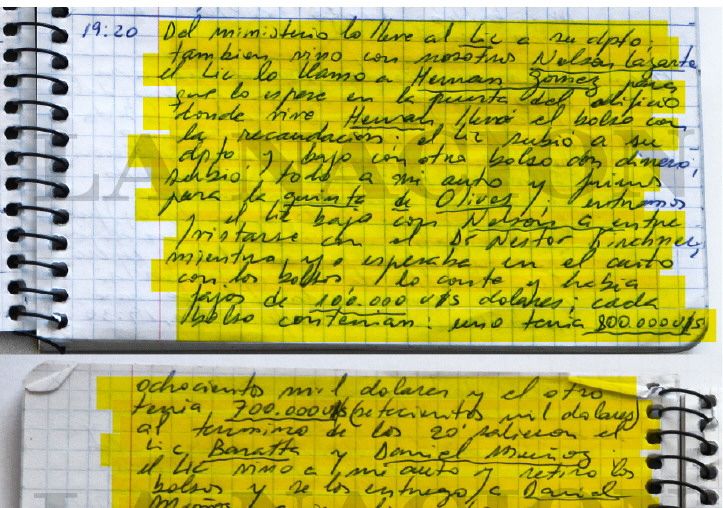 19:20 Del ministerio lo lleve al Lic a su dpto.
tambien vino con nosotros Nelson Lazarte
el Lic lo llamo a Hernan Gomez para
que lo espere en la puerta del edificio
donde vive Hernan llevó el bolso con
la recaudacion; el Lic subio a su
dpto y bajo con otro bolso con dinero,
subio todo a mi auto y fuimos
para la quinta de Olivos; entramos
y el Lic bajo con Nelson a entre
vistarse con el Dr Nestor Kirchner,
mientras yo esperaba en el auto
con los bolsos lo conte y habia
fajos de 100.000 u/s dolares; cada
bolso contenian: uno tenia 800.000 u/s
ochocientos mil dolares y el otro
tenia 700.000 u/s (setecientos mil dolares)
al termino de los 20' salieron el
Lic Baratta y Daniel Muñoz;
el Lic vino a mi auto y retiro los
bolsos y se los entrego a Daniel
Muñoz
LA NACION